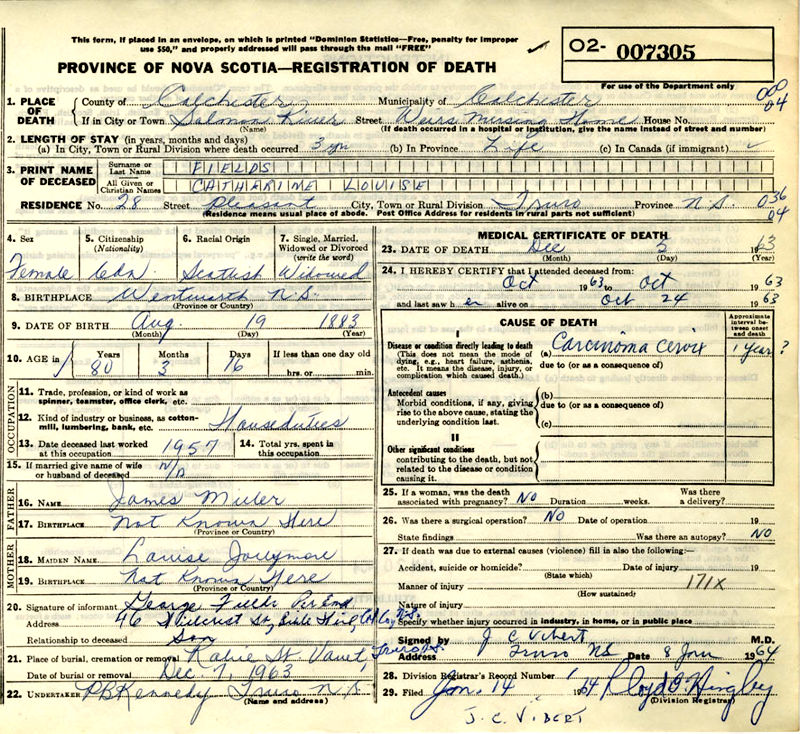 This form, if placed in an envelope, on which is printed "Dominion Statistics—Free, penalty for improper
use $50," and properly addressed will pass through the mail "FREE"
02- 007305
PROVINCE OF NOVA SCOTIA—REGISTRATION OF DEATH
For use of the Department only
1. PLACE OF DEATH County of Colchester Municipality of Colchester
04
If in City or Town Salmon River Street Weirs Nursing Home House No.
(Name) (If death occurred in a hospital or institution, give the name instead of street and number)
2. LENGTH OF STAY (in years, months and days)
(a) In City, Town or Rural Division where death occurred 3 yrs (b) In Province Life (c) In Canada (if immigrant)
3. PRINT NAME OF DECEASED Surname or Last Name FIELDS
All Given or Christian Names CATHARINE LOUISE
RESIDENCE No. 28 Street Pleasant City, Town or Rural Division Truro Province N.S. 036
04
(Residence means usual place of abode. Post Office Address for residents in rural parts not sufficient)
4. Sex 5. Citizenship (Nationality) 6. Racial Origin 7. Single, Married, Widowed or Divorced (write the word)
Female Cdn Scottish Widowed
8. BIRTHPLACE Wentworth N.S.
(Province or Country)
9. DATE OF BIRTH Aug 19 1883
(Month) (Day) (Year)
10. AGE in Years Months Days If less than one day old
80 3 16 hrs. or min.
OCCUPATION
11. Trade, profession, or kind of work as
spinner, teamster, office clerk, etc.
12. Kind of industry or business, as cotton-
mill, lumbering, bank, etc. Houseduties
13. Date deceased last worked
at this occupation 1957 14. Total yrs. spent in
this occupation
15. If married give name of wife
or husband of deceased N/A
FATHER
16. NAME James Miller
17. BIRTHPLACE Not Known Here
(Province or Country)
MOTHER
18. MAIDEN NAME Louise Jollymore
19. BIRTHPLACE Not Known Here
(Province or Country)
20. Signature of informant George Fields
Address 46 Hillcrest St, Bible Hill, Col Coy N.S.
Relationship to deceased Son Truro N.S.
21. Place of burial, cremation or removal St. Vault,
Date of burial or removal Dec. 7, 1963
22. UNDERTAKER P B Kennedy Truro N.S.
(Name and address)
MEDICAL CERTIFICATE OF DEATH
23. DATE OF DEATH Dec 5 1963
(Month) (Day) (Year)
24. I HEREBY CERTIFY that I attended deceased from:
Oct 1963 to Oct 1963
and last saw her alive on Oct 24 1963
CAUSE OF DEATH
Approximate interval between onset and death
I
Disease or condition directly leading to death
(This does not mean the mode of
dying, e.g., heart failure, asthenia,
etc. It means the disease, injury, or
complication which caused death.)
(a) Carcinoma Cervix 1 year ?
due to (or as a consequence of)
Antecedent causes
Morbid conditions, if any, giving
rise to the above cause, stating the
underlying condition last.
(b)
due to (or as a consequence of)
(c)
II
Other significant conditions
contributing to the death, but not
related to the disease or condition
causing it.
25. If a woman, was the death
associated with pregnancy? NO Duration weeks. Was there
a delivery?
26. Was there a surgical operation? NO Date of operation 19
State findings Was there an autopsy? NO
27. If death was due to external causes (violence) fill in also the following:—
Accident, suicide or homicide? Date of injury 19
(State which)
Manner of injury 171X
(How sustained)
Nature of injury
Specify whether injury occurred in industry, in home, or in public place
Signed by J C Vibert M.D.
Address Truro NS Date 8 Jan 1964
28. Division Registrar's Record Number 1
29. Filed Jan. 14 1964
(Division Registrar)
J. C. VIBERT